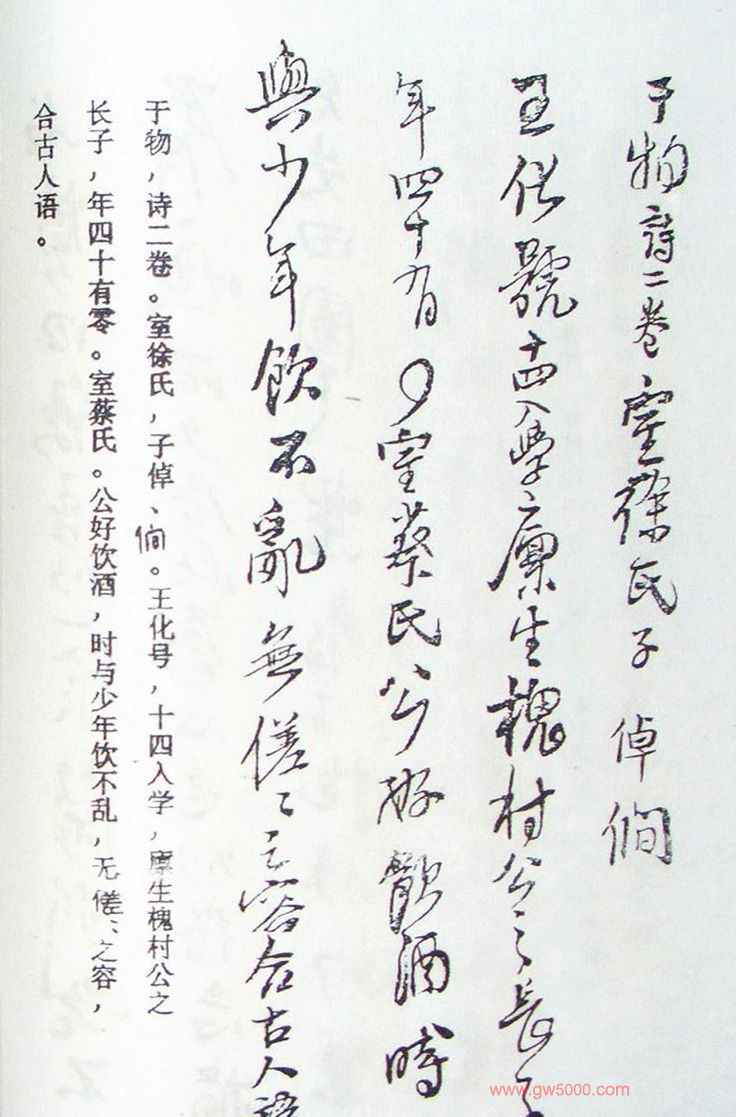 于物詩二卷室徐氏子倬僩
王化號十四入學廩生槐村公之長子
年四十有〇室蔡氏公好飲酒時
與少年飲不亂無傞〻之容合古人語
于物，诗二卷。室徐氏，子倬、僩。王化号，十四入学，廪生槐村公之
长子，年四十有零。室蔡氏。公好饮酒，时与少年饮不乱，无傞〻之容，
合古人语。
www.gw5000.com